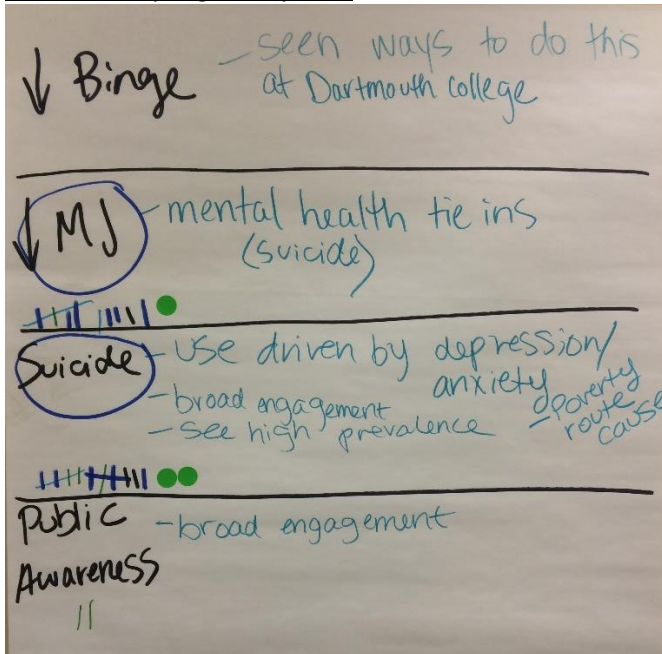 ↓ Binge - seen ways to do this
at Dartmouth College
↓ MJ - mental health tie ins
(suicide)
Suicide - use driven by depression/
anxiety
- broad engagement
- see high prevalence
- poverty
route
cause
Public - broad engagement
Awareness